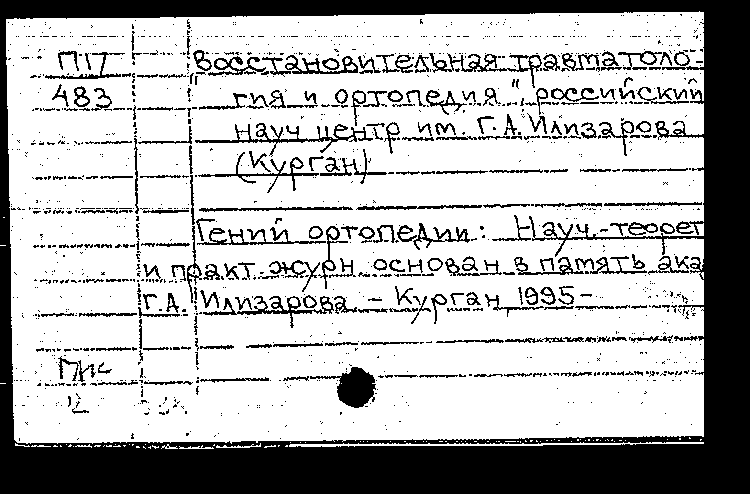 П17 Восстановительная травматоло-
483 гия и ортопедия", российский
науч центр им. Г.А. Илизарова
(Курган)
Гений ортопедии: Науч.-теорет
и практ. журн. основан в память ака
Г.А. Илизарова. – Курган, 1995 –